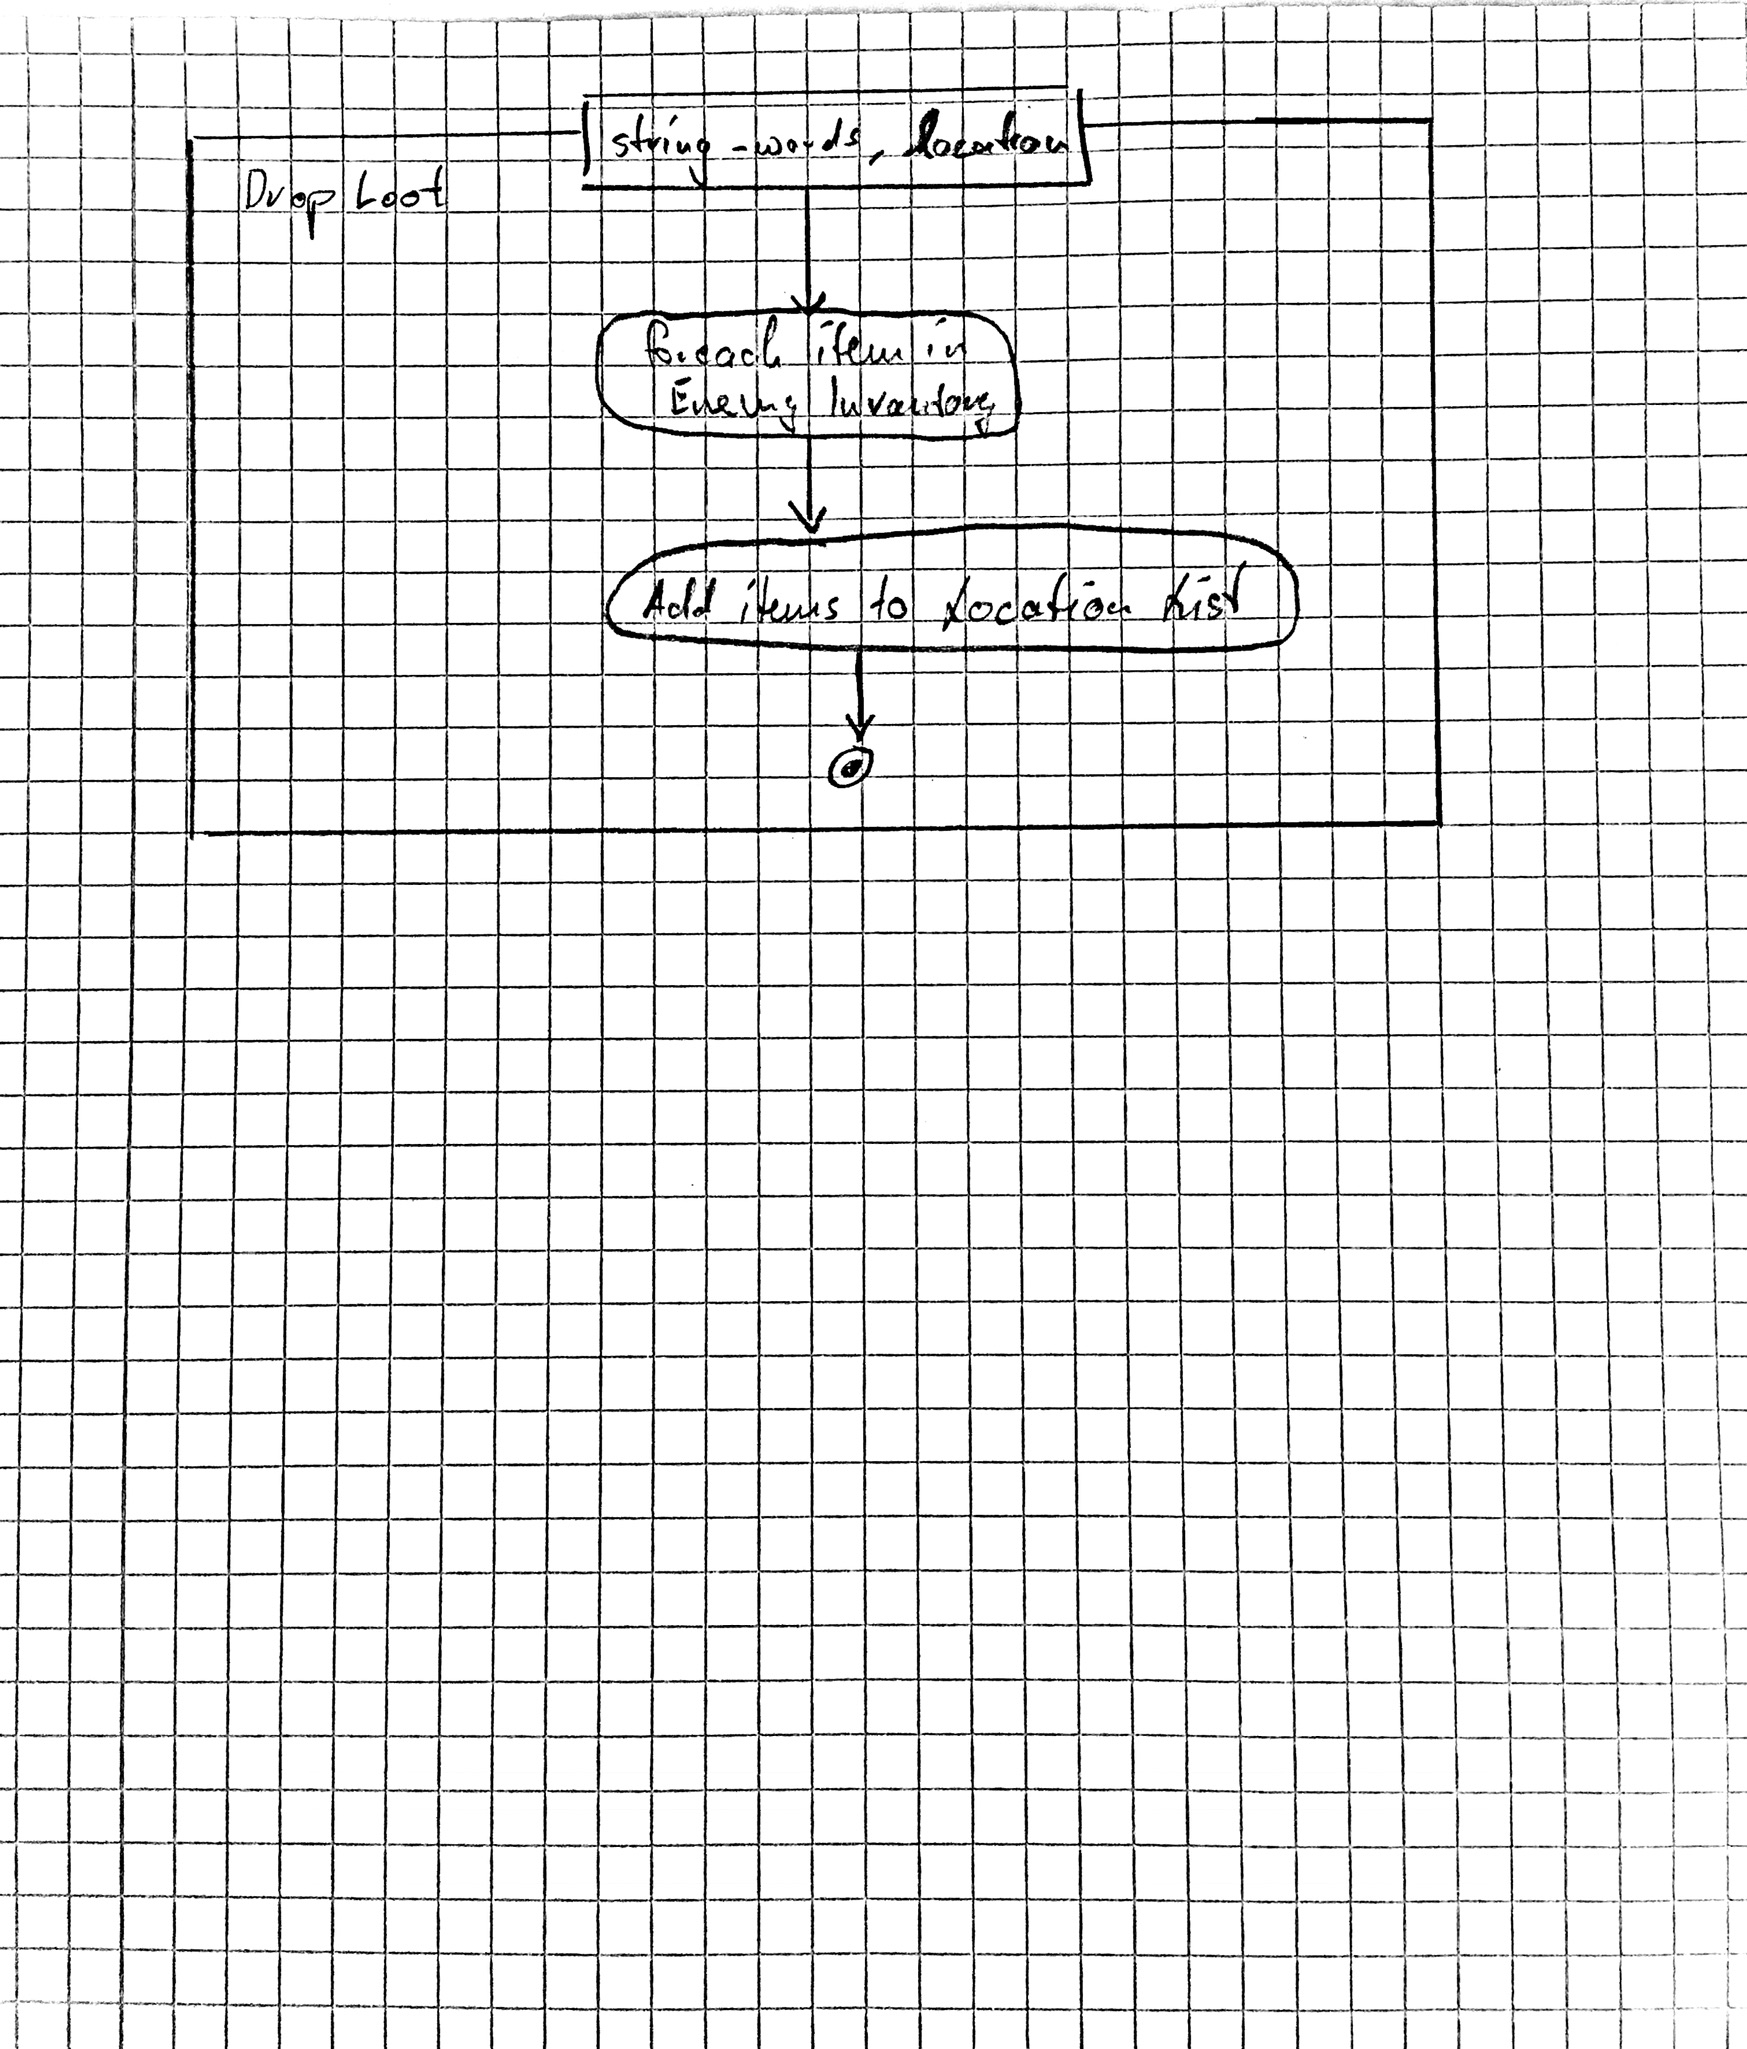 string -words, location
Drop Loot
foreach item in
Enemy Inventory
Add items to Location List